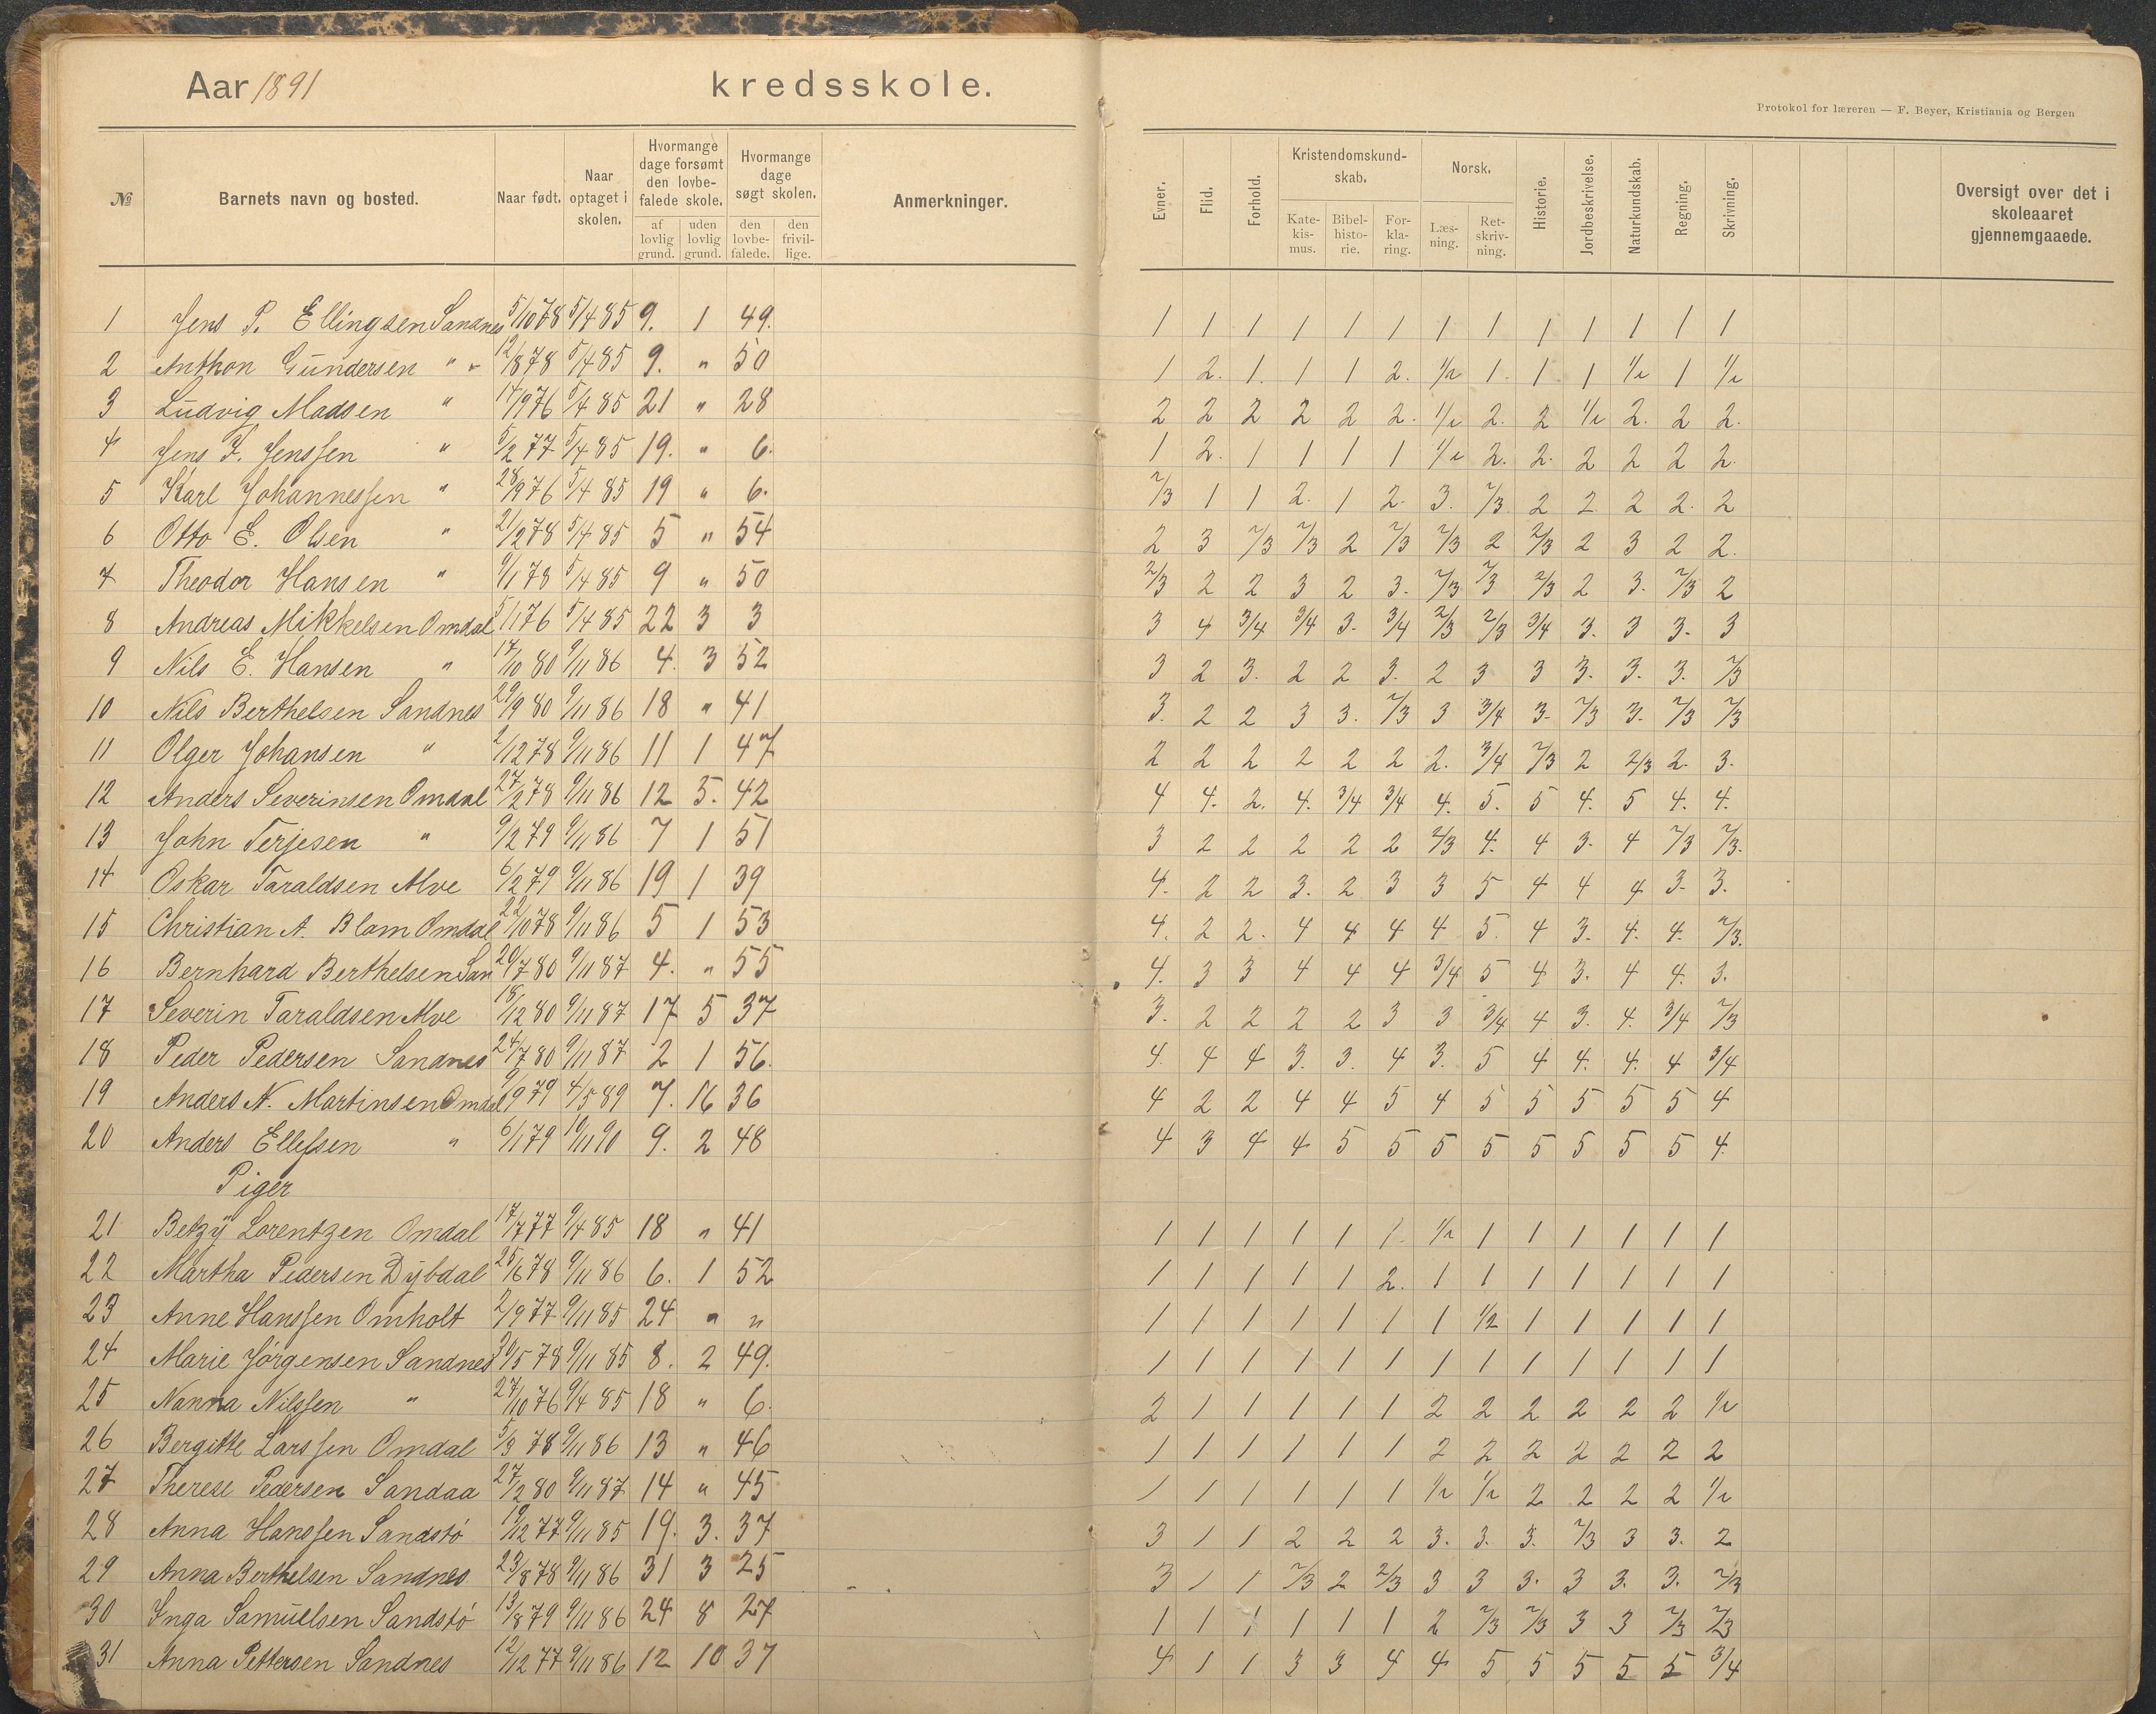 Aar 1891 kredsskole.
Protokol for læreren — F. Beyer, Kristiania og Bergen
№ Barnets navn og bosted. Naar født. Naar optaget i skolen. Hvormange dage forsømt den lovbefalede skole. af lovlig grund. uden lovlig grund. Hvormange dage søgt skolen. den lovbefalede. den frivillige. Anmerkninger. Evner. Flid. Forhold. Kristendomskundskab. Katekismus. Bibelhistorie. Forklaring. Norsk. Læsning. Retskrivning. Historie. Jordbeskrivelse. Naturkundskab. Regning. Skrivning. Oversigt over det i skoleaaret gjennemgaaede.
1 Jens P. Ellingsen Sandnes 5/10 78 5/4 85 9. 1 49. 1 1 1 1 1 1 1 1 1 1 1 1 1
2 Anthon Gundersen " " 12/8 78 5/4 85 9. " 50 1 2. 1. 1 1 2. 1/2 1. 1. 1 1/2 1 1/2
3 Ludvig Madsen " 14/9 76 5/4 85 21 " 28 2 2 2 2 2 2. 1/2 2. 2 1/2 2. 2 2.
4 Jens F. Jenssen " 5/2 77 5/4 85 19. " 6. 1 2. 1 1 1 1 1/2 2. 2. 2 2 2 2.
5 Karl Johannessen " 28/9 76 5/4 85 19 " 6. 2/3 1 1 2. 1 2. 3. 2/3 2 2 2 2. 2
6 Otto E. Olsen " 21/2 78 5/4 85 5 " 54 2 3 2/3 2/3 2 2/3 2/3 2 2/3 2 3 2 2.
7 Theodor Hansen " 9/1 78 5/4 85 9 " 50 2/3 2 2 3 2 3. 2/3 2/3 2/3 2 3. 2/3 2
8 Andreas Mikkelsen Omdal 5/1 76 5/4 85 22 3 3 3 4 3/4 3/4 3. 3/4 2/3 2/3 3/4 3. 3 3. 3
9 Nils E. Hansen " 17/10 80 9/11 86 4. 3 52 3 2 3. 2 2 3. 2 3 3 3. 3. 3. 2/3
10 Nils Berthelsen Sandnes 29/9 80 9/11 86 18 " 41 3. 2 2 3 3. 2/3 3 3/4 3. 2/3 3. 2/3 2/3
11 Olger Johansen " 2/12 78 9/11 86 11 1 47 2 2 2 2 2 2 2. 3/4 2/3 2 2/3 2. 3.
12 Anders Severinsen Omdal 27/2 78 9/11 86 12 5. 42 4 4. 2. 4. 3/4 3/4 4. 5. 5 4. 5 4. 4.
13 John Terjesen " 9/2 79 9/11 86 7 1 51 3 2 2 2 2 2 2/3 4. 4 3. 4 2/3 2/3.
14 Oskar Taraldsen Alve 6/2 79 9/11 86 19 1 39 4. 2 2 3. 2 3 3 5 4 4 4 3. 3.
15 Christian A. Blom Omdal 22/10 78 9/11 86 5 1 53 4. 2 2. 4 4 4 4 5. 4 3. 4. 4. 2/3.
16 Bernhard Berthelsen San 20/7 80 9/11 87 4. " 55 4. 3 3 4 4 4 3/4 5 4 3. 4 4. 3.
17 Severin Taraldsen Alve 18/12 80 9/11 87 17 5 37 3. 2 2 2 2 3 3 3/4 4 3. 4. 3/4 2/3
18 Peder Pedersen Sandnes 24/7 80 9/11 87 2 1 56. 4. 4 4 3. 3. 4 3. 5 4 4. 4. 4 3/4
19 Anders N. Martinsen Omdal 9/9 79 4/5 89 7. 16 36 4 2 2 4 4 5 4 5 5 5 5 5 4
20 Anders Ellefsen " 6/1 79 10/11 90 9. 2 48 4 3 4 4 5 5 5 5 5 5 5 5 4.
Piger
21 Betzy Lorentzen Omdal 17/7 77 9/4 85 18 " 41 1 1 1 1 1 1. 1/2 1 1 1 1 1 1
22 Martha Pedersen Dybdal 25/6 78 9/11 86 6. 1 52 1 1 1 1 1 2. 1 1 1 1 1 1 1
23 Anne Hanssen Omholt 2/9 77 9/11 85 24 " " 1 1 1 1 1 1 1 1/2 1 1 1 1 1
24 Marie Jörgensen Sandnes 30/5 78 9/11 85 8. 2 49. 1 1 1 1 1 1 1 1 1 1 1 1 1
25 Nanna Nilssen " 27/10 76 9/4 85 18 " 6. 2 1 1 1 1 1 2 2 2 2 2 2 1/2
26 Bergitte Larssen Omdal 5/3 78 9/11 86 13 " 46 1 1 1 1 1 1 2 2 2 2 2 2 2
27 Therese Pedersen Sandaa 27/2 80 9/11 87 14 " 45 1 1 1 1 1 1 1/2 1/2 2 2 2 2 1/2
28 Anna Hanssen Sandstö 19/12 77 9/11 85 19. 3. 37 3 1 1 2 2 2 3. 3. 3. 2/3 3 3. 2
29 Anna Berthelsen Sandnes 23/8 78 9/11 86 31 3 25 3 1 1 2/3 2 2/3 3 3 3. 3 3. 3. 2/3
30 Inga Samuelsen Sandstö 13/8 79 9/11 86 24 8 27 1 1 1 1 1 1 2 2/3 2/3 3 3 2/3 2/3
31 Anna Pettersen Sandnes 12/12 77 9/11 86 12 10 37 4 1 1 3 3 4 4 5 5 5 5 5 3/4